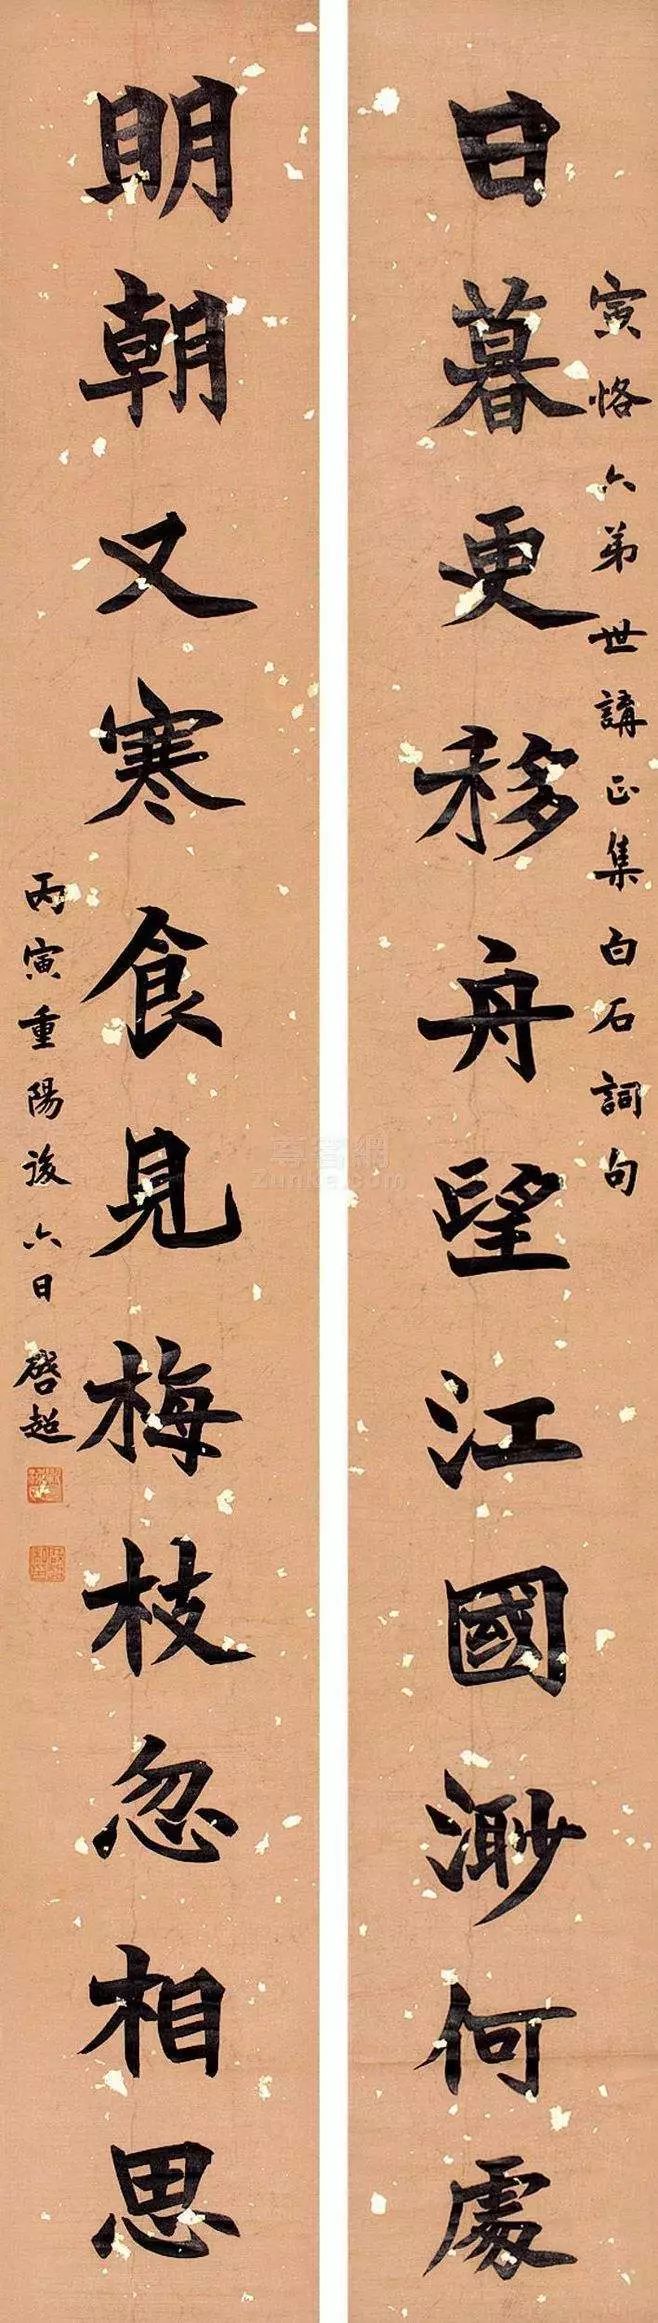 寅恪六弟世講正集白石詞句
日暮更移舟望江國渺何處
明朝又寒食見梅枝忽相思
丙寅重陽後六日啓超
尊客網
Zunka.com